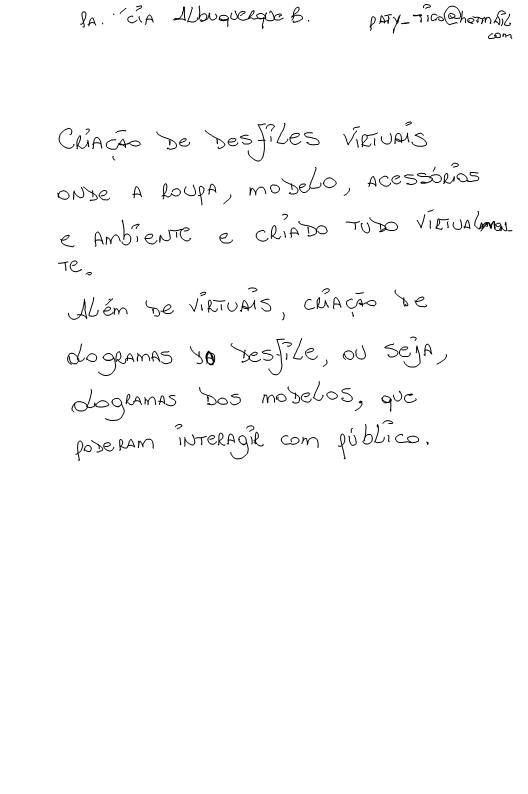 Pa. ícia Albuquerque B. paty_tico@hotmail
com
Criação de desfiles virtuais
onde a roupa, modelo, acessórios
e ambiente e criado tudo virtualmen
te.
Além de virtuais, criação de
ologramas do desfile, ou seja,
ologramas dos modelos, que
poderam interagir com público.